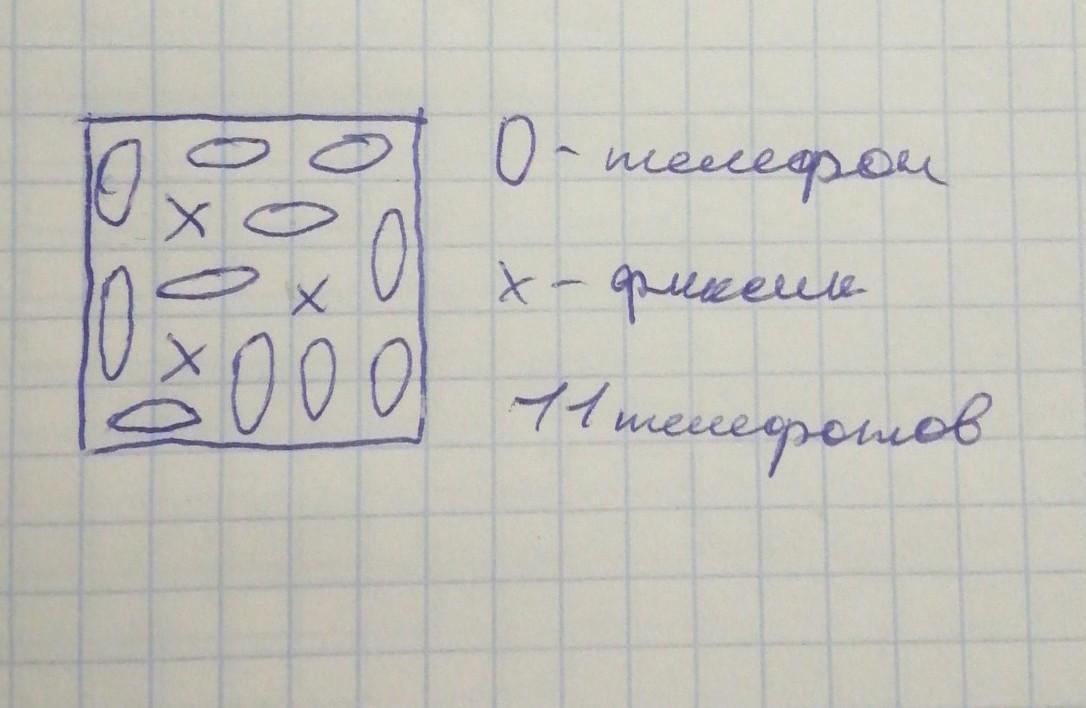 0 - телефон
x - фиксик
11 телефонов